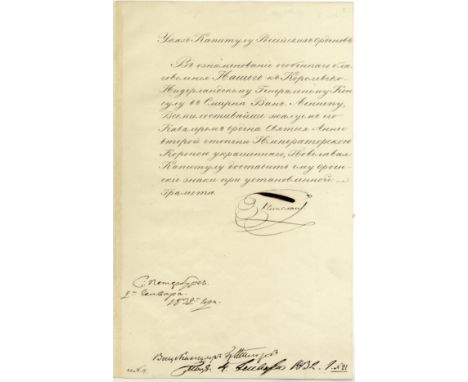 Указъ Капитулу Россійскихъ орденовъ.
Въ ознаменованіе особеннаго бла-
говоленія Нашего къ Королевско-
Нидерландскому Генеральному Кон-
сулу въ Смирнѣ Ванъ Леннепу,
Всемилостивѣйше жалуемъ его
Кавалеромъ ордена Святыя Анны
второй степени Императорскою
Короною украшеннаго, Повелѣвая
Капитулу доставить ему орден-
скіе знаки при установленной
грамотѣ.
Николай
С. Петербургъ
Января
Вице Канцлеръ
4. Января 1852.